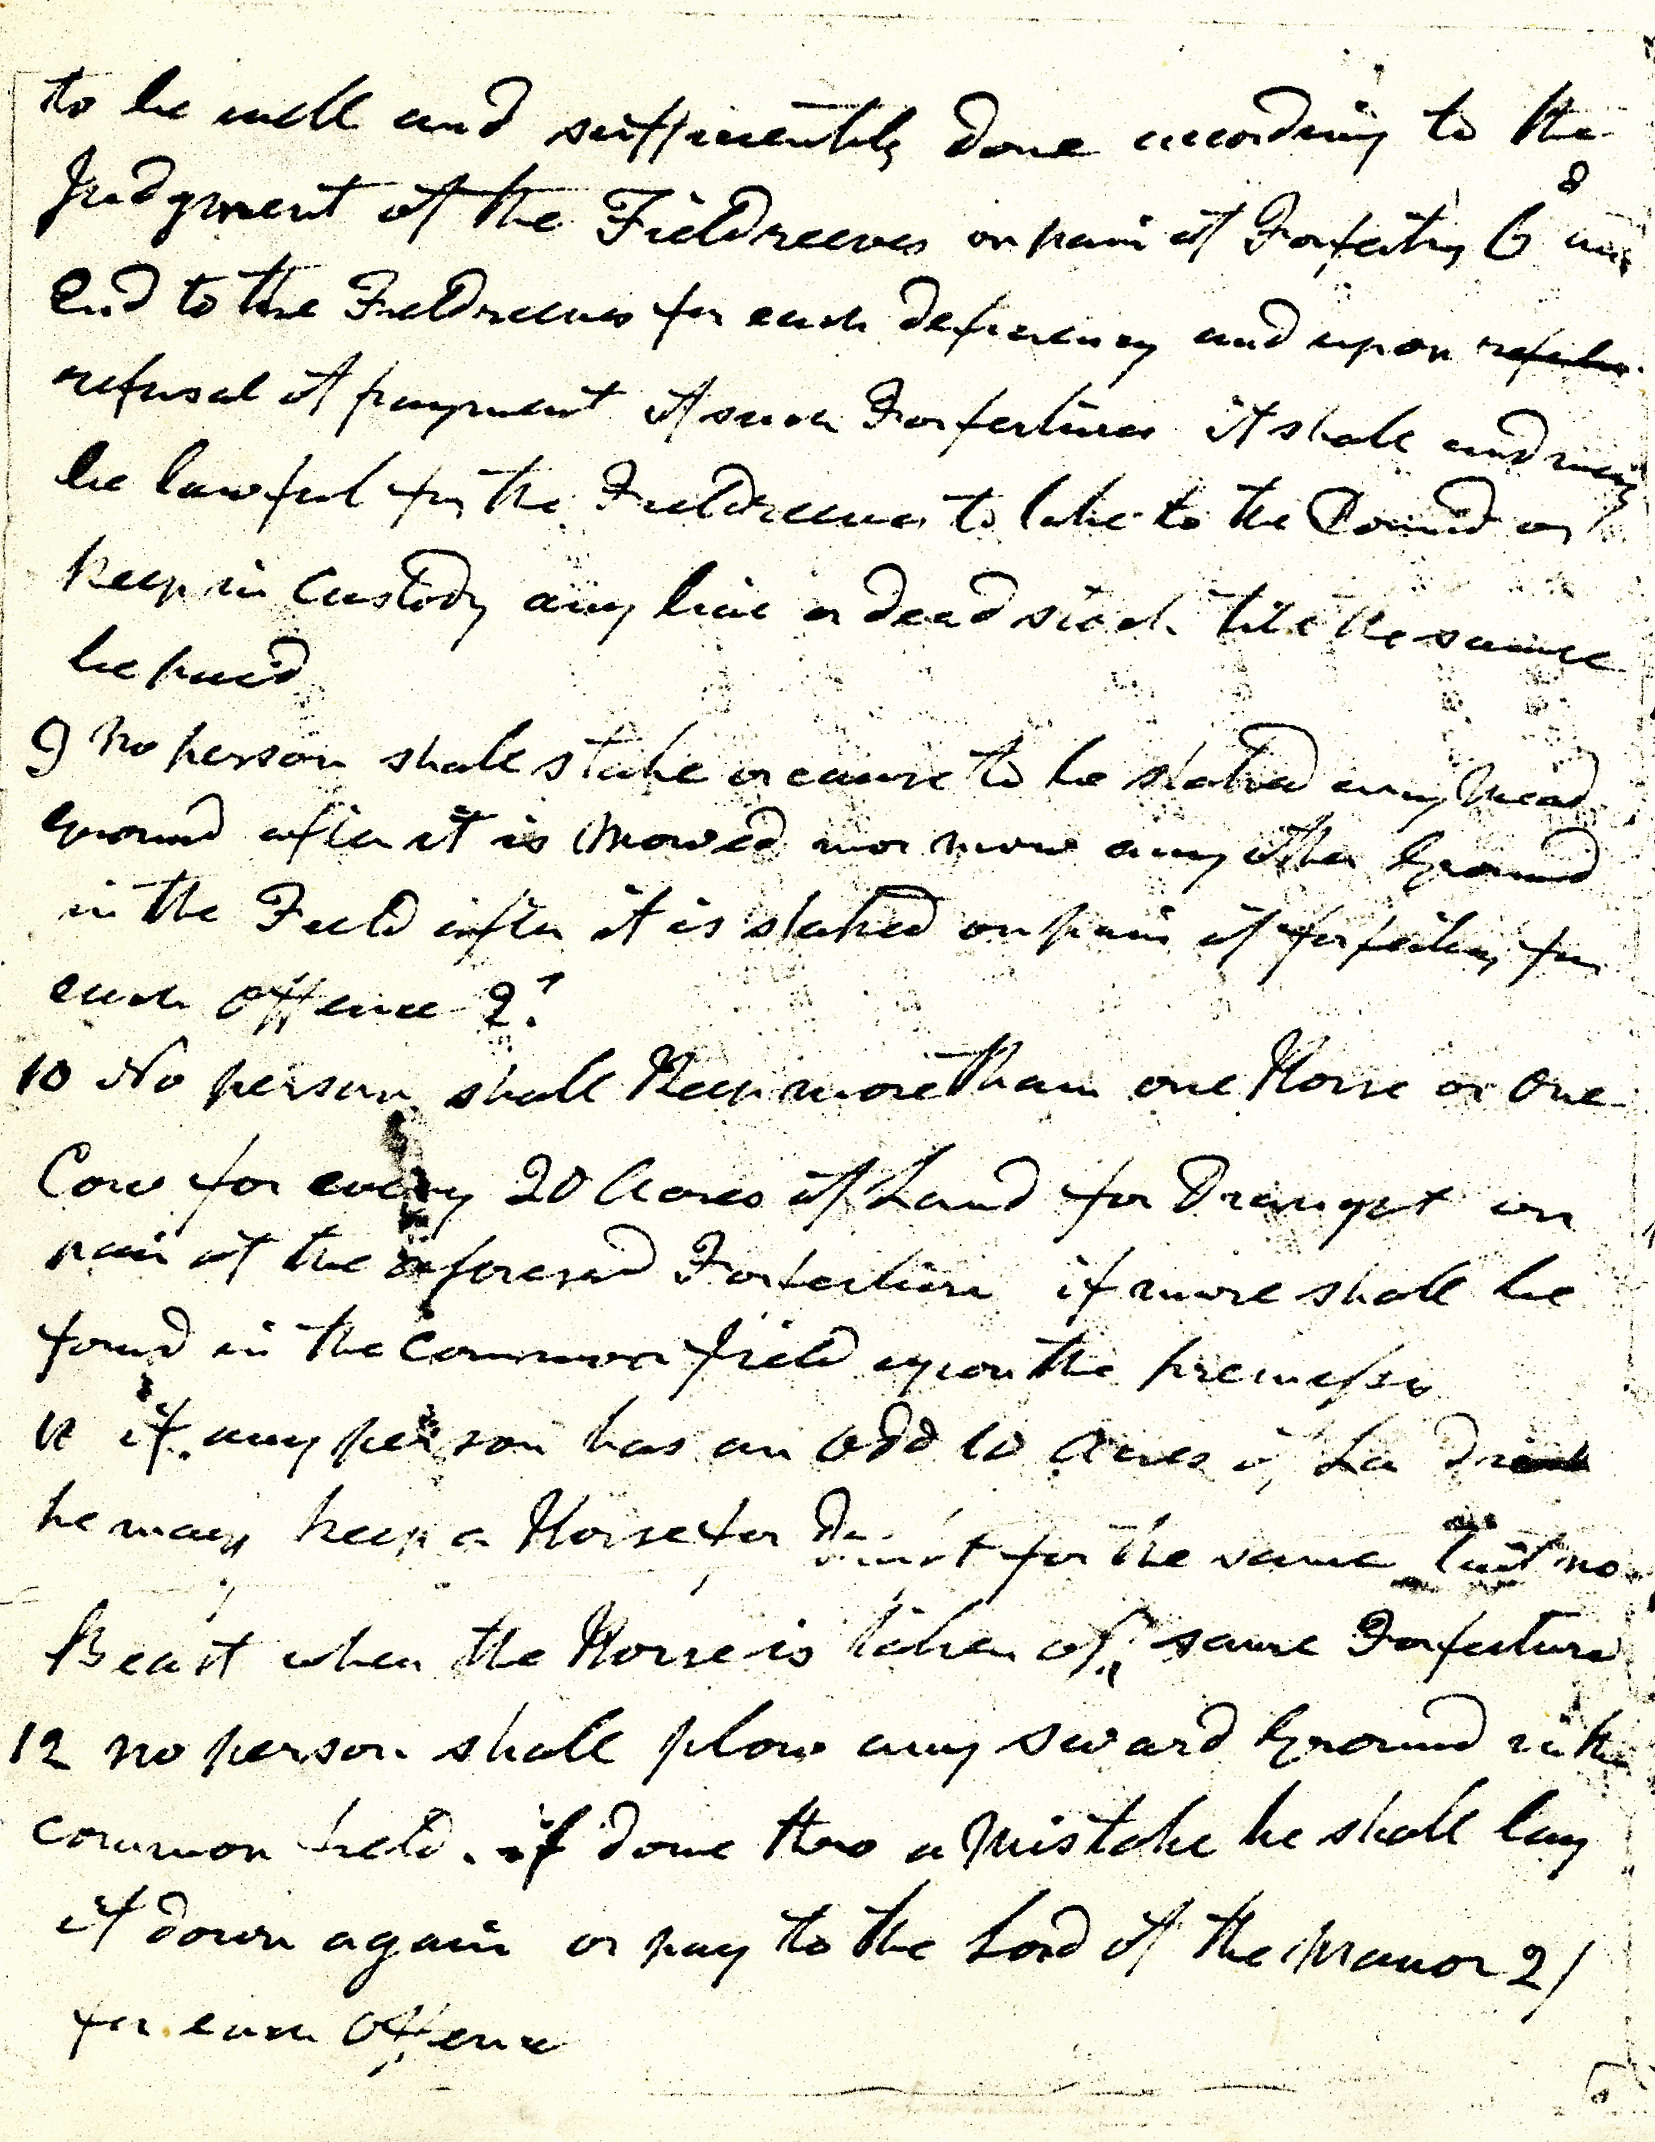 to be well and sufficiently done according to the
Judgment of the Fieldreeves on pain of Forfeiting 6d an
End to the Fieldreeves for each deficiency and upon
refusal of payment of such Forfeitures it shall and may
be lawful for the Fieldreeves to take to the Pound or
keep in Custody any live or dead stock till the same
be paid
9 No person shall stake or cause to be staked any Mead
ground after it is Mowed nor mow any other Ground
in the Field after it is staked on pain of forfeiting for
each Offence 2s
10 No person shall Keep more than one Horse or One
Cow for every 20 Acres of Land for Draught on
pain of the aforesaid Forfeiture if more shall be
found in the Common field upon the premises
11 if any person has an odd 10 Acres of La
he may keep a Horse for for the same but no
Beast when the Horse is taken of same Forfeiture
12 no person shall plow any sward Ground in the
common field. if done thro a Mistake he shall lay
it down again or pay to the Lord of the Manor 2/
for each Offence